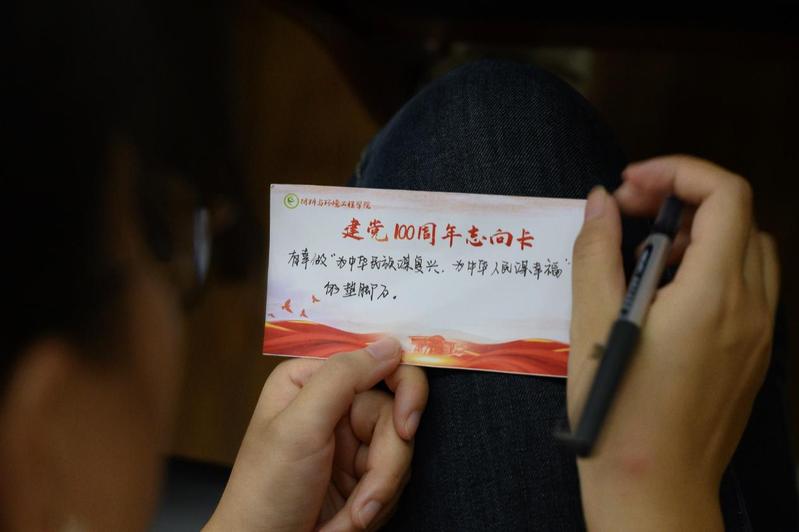 材料与环境工程学院
建党100周年志向卡
有幸做“为中华民族谋复兴，为中华人民谋幸福”
的垫脚石。